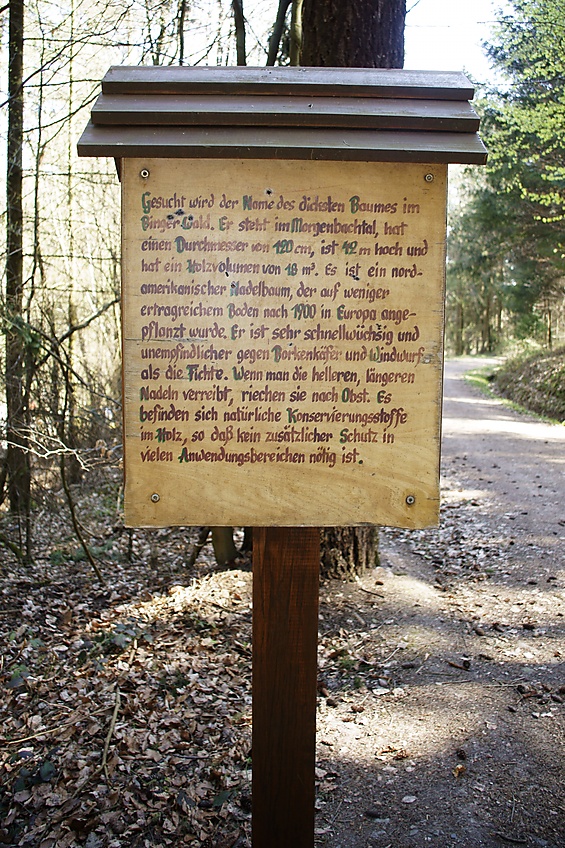 Gesucht wird der Name des dicksten Baumes im
Binger Wald. Er steht im Morgenbachtal, hat
einen Durchmesser von 120 cm, ist 42 m hoch und
hat ein Holzvolumen von 18 m³. Es ist ein nord-
amerikanischer Nadelbaum, der auf weniger
ertragreichem Boden nach 1900 in Europa ange-
pflanzt wurde. Er ist sehr schnellwüchsig und
unempfindlicher gegen Borkenkäfer und Windwurf
als die Fichte. Wenn man die helleren, längeren
Nadeln verreibt, riechen sie nach Obst. Es
befinden sich natürliche Konservierungsstoffe
im Holz, so daß kein zusätzlicher Schutz in
vielen Anwendungsbereichen nötig ist.